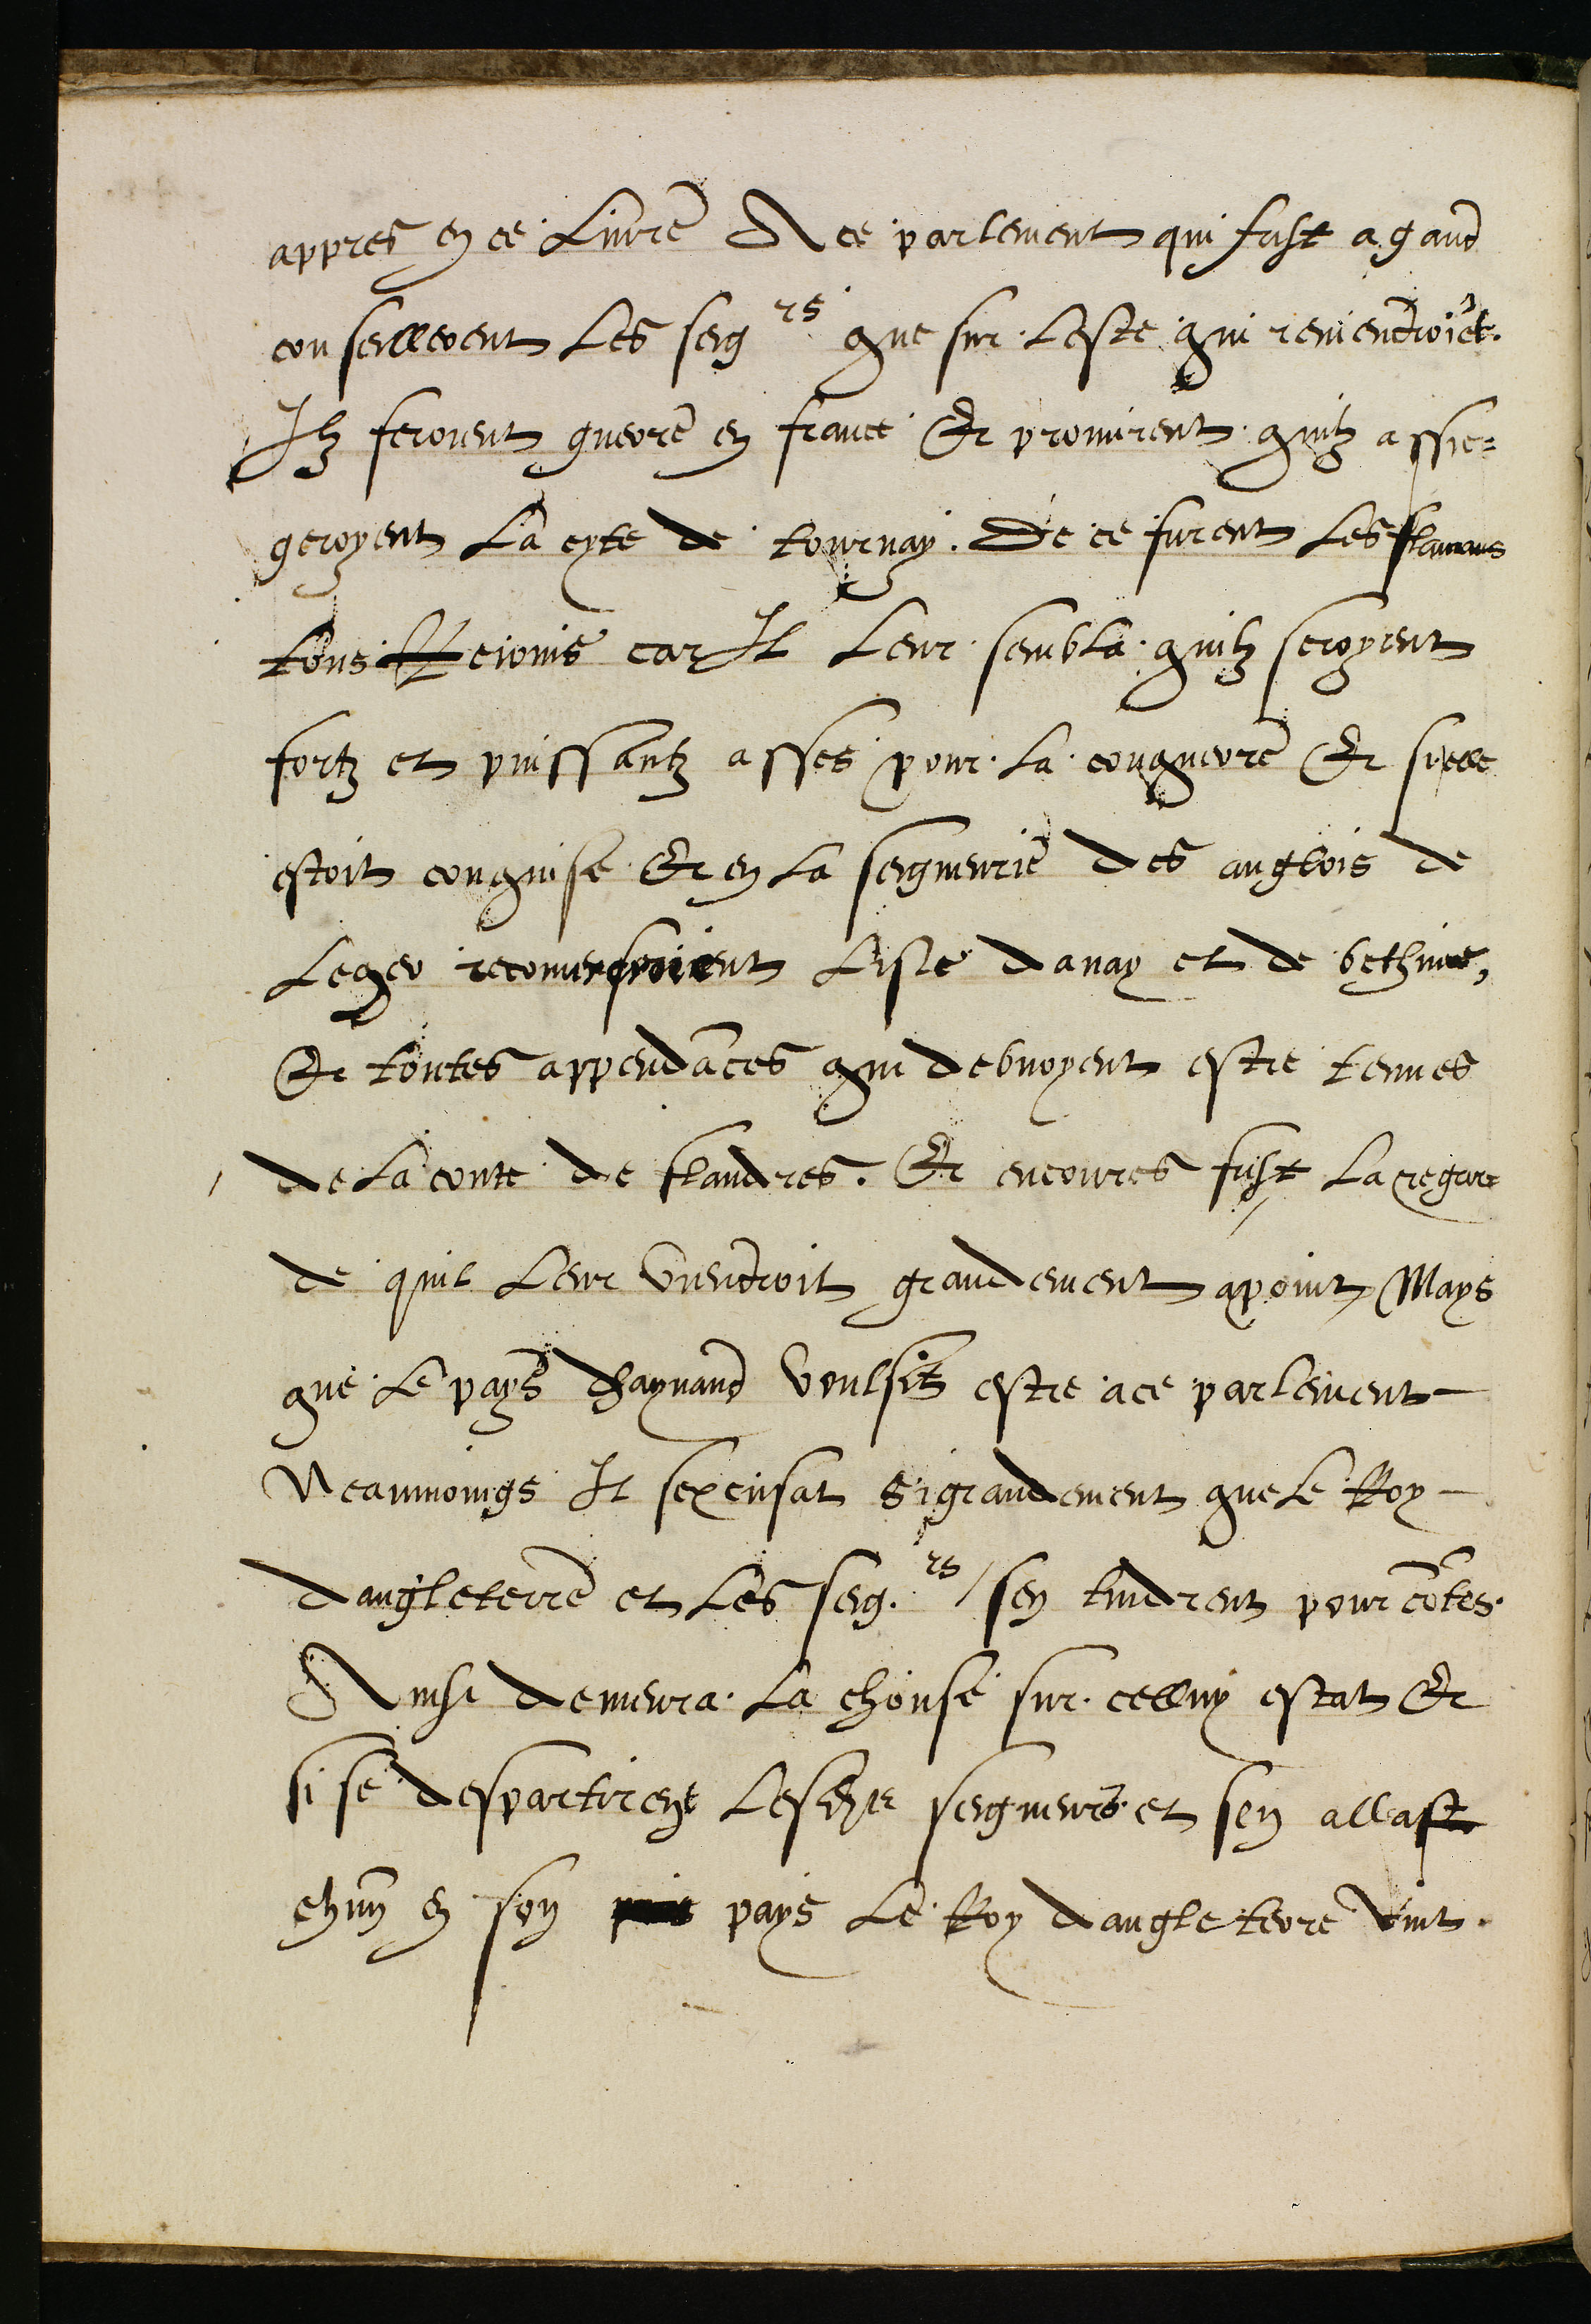 appres en ce Livre A ce parlement qui fust a gand
conseillerent Les seigrs que sur Leste qui reviendroiet.
Ilz feroient guerre en france Et promirent quilz assie=
geroyent La cyte de tournay. De ce furent Les flamans
tous Reiouis car Il Leur sembla quilz seroyent
fortz et puissantz asses pour La conquerre Et si elle
estoit conquise Et en La seigneurie des anglois de
Leger recouvreroient Lisle douay et de bethune,
Et toutes appendāces qui debvoyent estre tenues
de La conte de flandres. Et encoures fust La regar=
de quil Leur viendroit grandement apoint Mays
que Le pays dhaynaud voulsit estre a ce parlement
Neanmoings Il sexcusat si grandement que Le Roy
dangleterre et Les seig.rs sen tindrent pour cōtes.
Ainsi demeura La chouse sur celluy estat Et
si se despartirent seigneurs et sen allast
chūn en son pays Le Roy dangleterre vint.